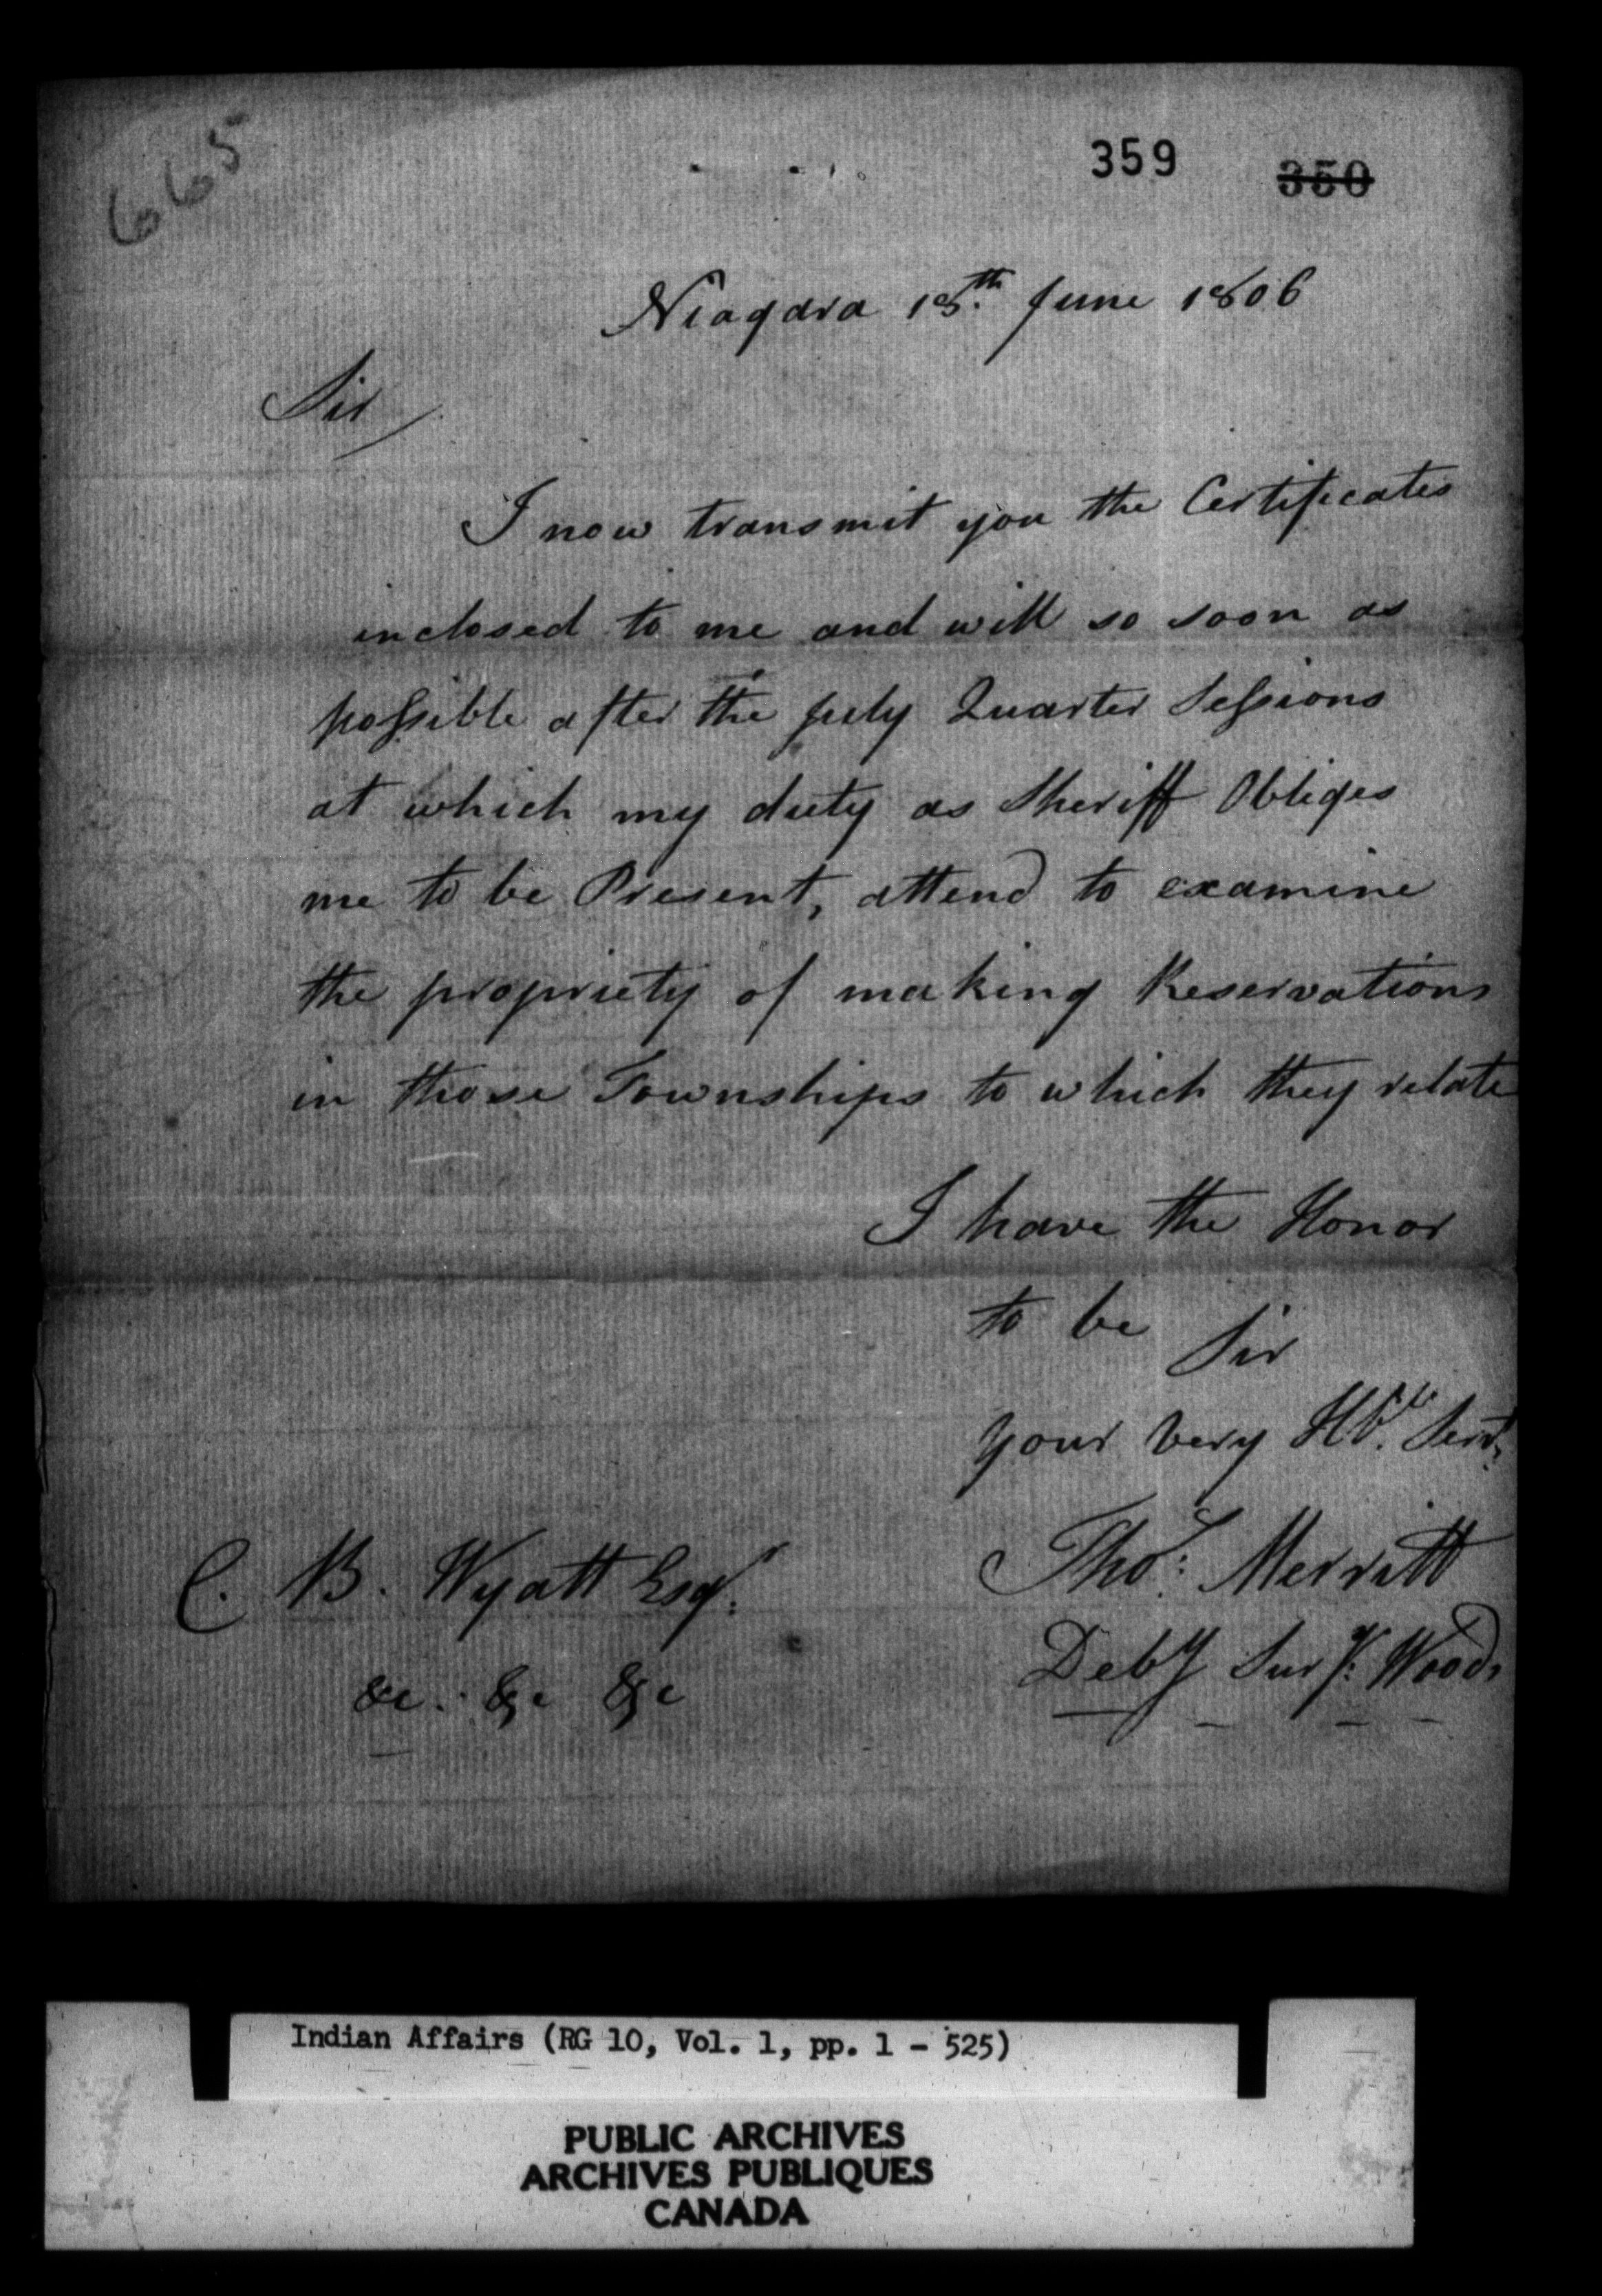 665
359 350
Niagara 18th June 1806
Sir
I now transmit you the Certificates
inclosed to me and will so soon as
possible after the July Quarter Sessions
at which my duty as Sheriff Obliges
me to be Present, attend to examine
the propriety of making Reservations
in those Townships to which they relate
I have the Honor
to be
Sir
your very Hble. Servt.
Thos: Merritt
C. B. Wyatt Esqr:
Deby Surv: Woods
&c. &c &c
Indian Affairs (RG 10, Vol. 1, pp. 1 - 525)
PUBLIC ARCHIVES
ARCHIVES PUBLIQUES
CANADA